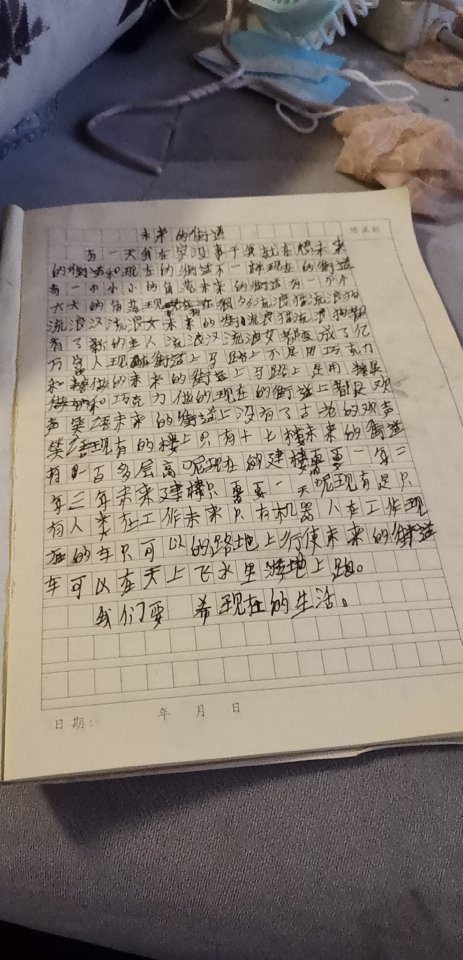 未来的街道
有一天我在家没事干我就在想未来
的街道和现在的街道不一样现在的街道
有一个小小的角落未来的街道有一个个
大大的角落现在有很多流浪猫流浪狗
流浪汉流浪女未来的街流浪猫流浪狗都
有了新的主人流浪汉流浪女都变成了亿
万富人现街道上马路上不是用巧克力
和糖做的未来的街道上马路上是用糖果
和巧克力做的现在的街道上都是欢
声笑语未来的街道上没有了吉的欢声
笑语现有的楼上只有十七楼未来的街道
有一百多层高呢现在的建楼需要一年二
年三年未来建楼只需要一天呢现有是只
有人类在工作未来只有机器人在工作现
在的车只可以的路地上行使未来的街道
车可以在天上飞水里游地上跑。
我们要 希现在的生活。
日期: 年 月 日